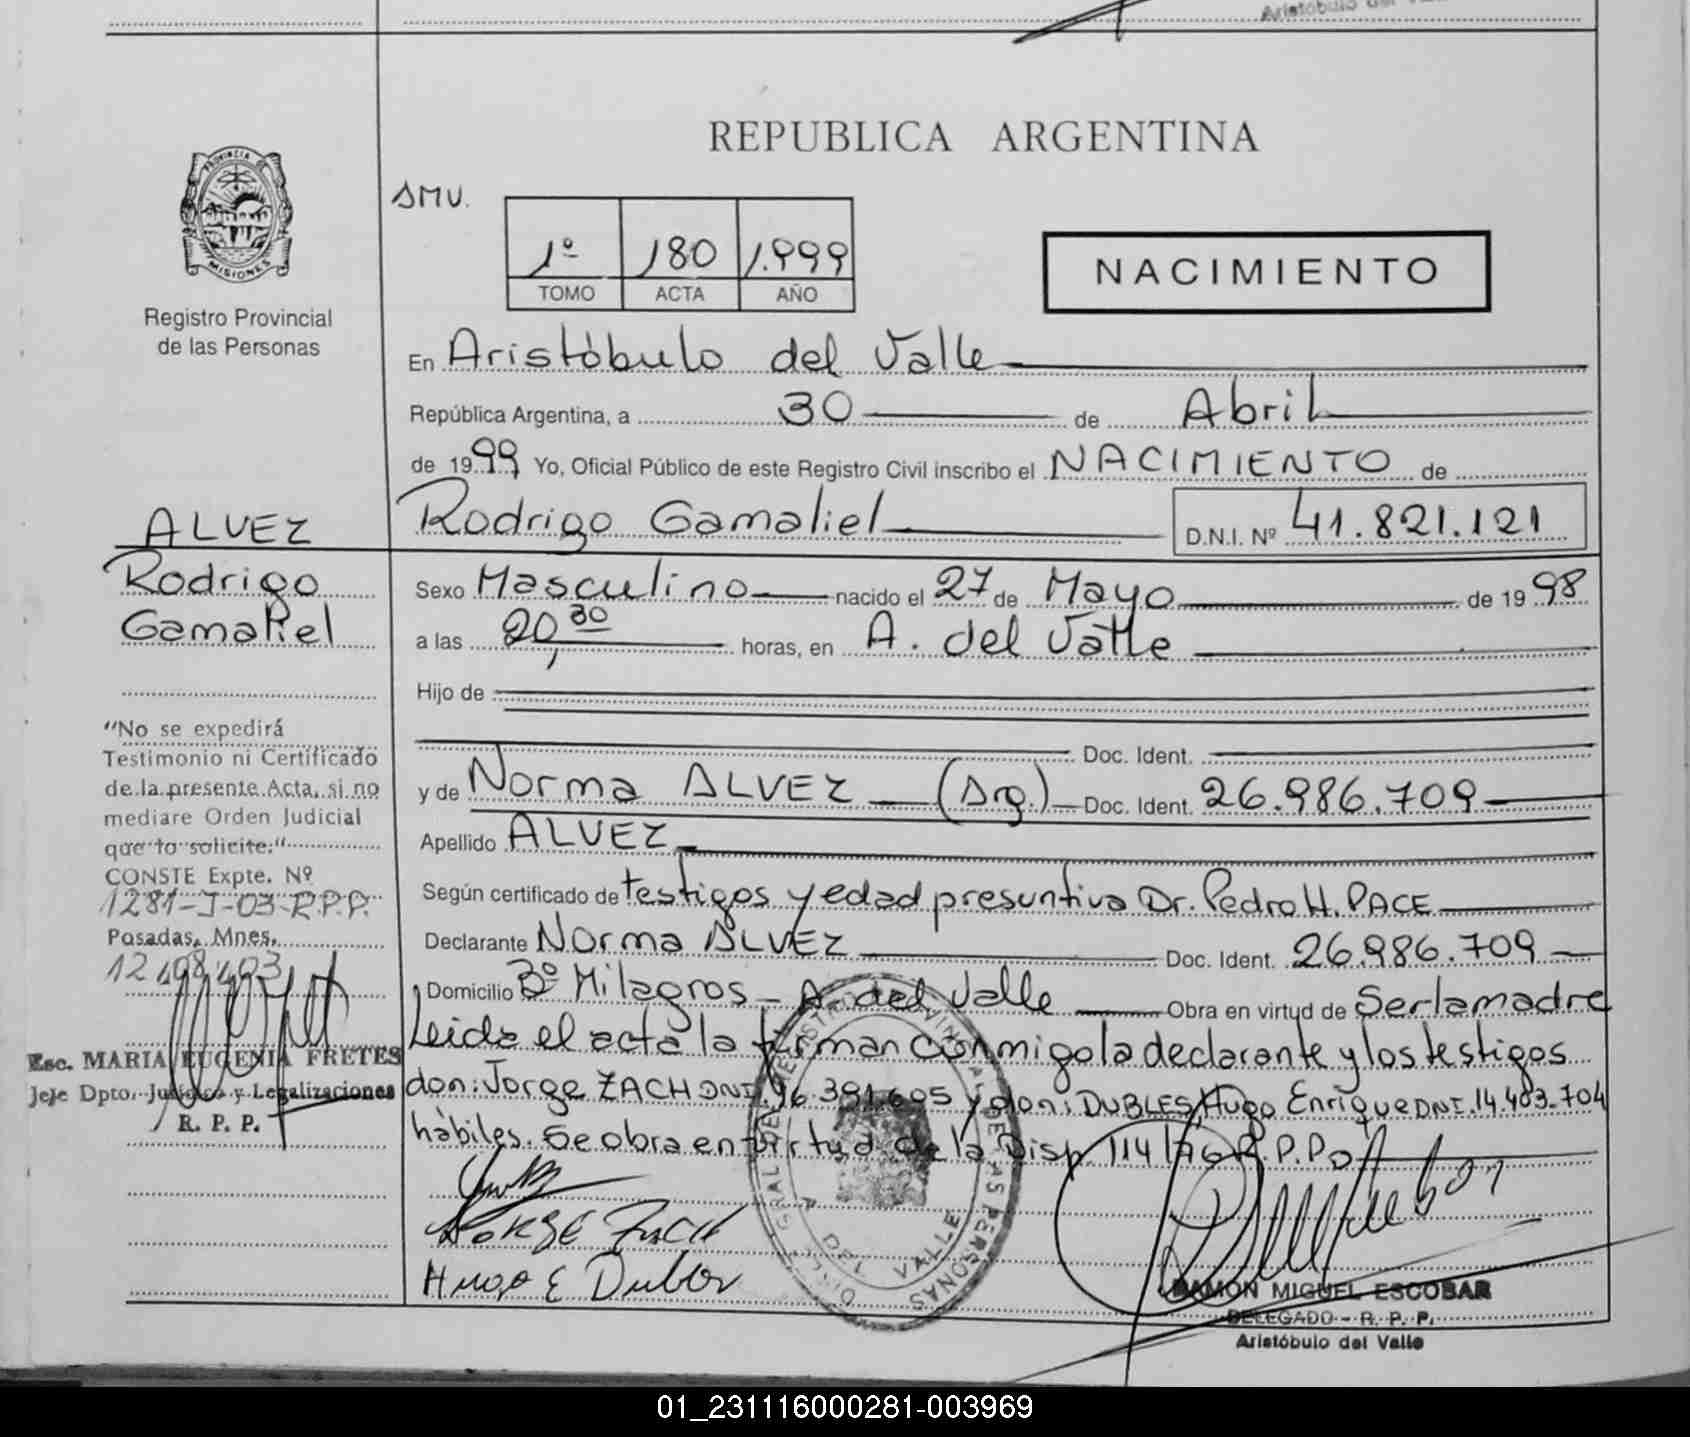 Aristóbulo del Valle
REPUBLICA ARGENTINA
PROVINCIA DE
MISIONES
Registro Provincial
de las Personas
SMV.
1º 180 1.999
TOMO ACTA AÑO
NACIMIENTO
En Aristóbulo del Valle
República Argentina, a 30 de Abril
de 1999 Yo, Oficial Público de este Registro Civil inscribo el NACIMIENTO de
Rodrigo Gamaliel D.N.I. Nº 41.821.121
ALVEZ
Rodrigo
Gamaliel
Sexo Masculino nacido el 27 de Mayo de 1998
a las 20,30 horas, en A. del Valle
Hijo de
Doc. Ident.
y de Norma ALVEZ (Arg.) Doc. Ident. 26.986.709
Apellido ALVEZ
Según certificado de testigos y edad presuntiva Dr. Pedro H. PACE
Declarante Norma ALVEZ Doc. Ident. 26.986.709
Domicilio Bº Milagros - A. del Valle Obra en virtud de Ser la madre
Leida el acta la firman conmigo la declarante y los testigos
don: Jorge ZACH DNI. 16.391.605 y don: DUBLES, Hugo Enrique DNI. 14.403.704
hábiles. Se obra en virtud de la Disp. 114/76 R.P.P.
"No se expedirá
Testimonio ni Certificado
de la presente Acta, si no
mediare Orden Judicial
que lo solicite."
CONSTE Expte. Nº
1281-J-03-R.P.P.
Posadas, Mnes.
12/08/03
Esc. MARIA EUGENIA FRETES
Jefe Dpto. Jurídico y Legalizaciones
R. P. P.
JORGE ZACH
Hugo E
A DEL VALLE
RAMON MIGUEL ESCOBAR
DELEGADO - R. P. P.
Aristóbulo del Valle
01_231116000281-003969